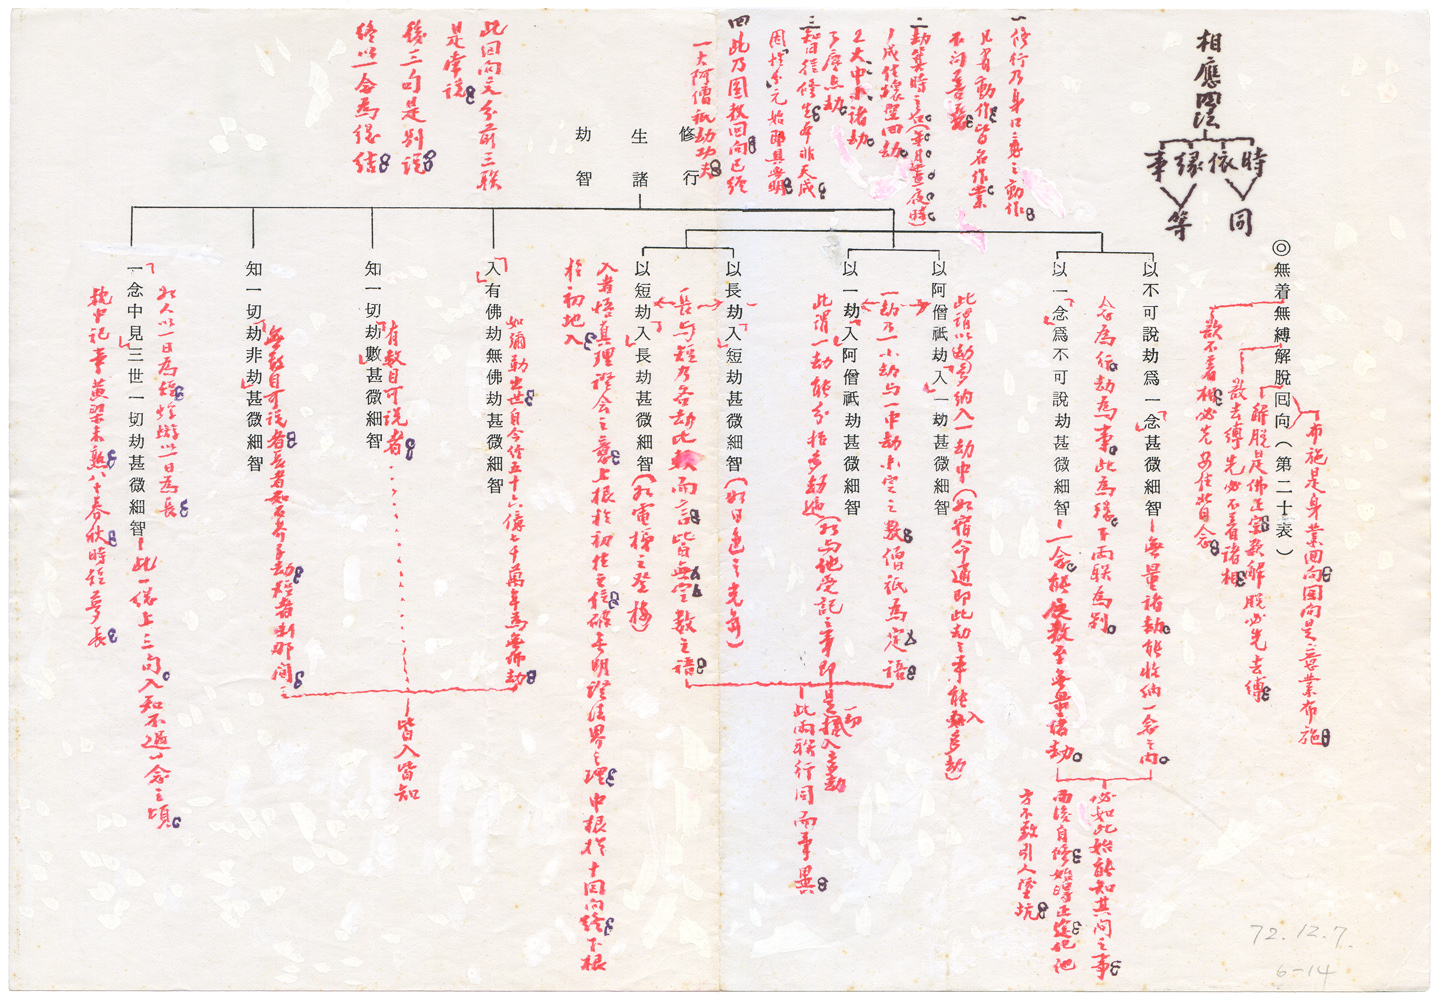 相應四法
時依緣事
同等
◎無着無縛解脫囘向(第二十表)
布施是身業回向回向是意業布施
解脫是佛正宗欲解脫必先去縛
欲去縛先必不着諸相
欲不着相必先安住此自念
一修行乃身口意之動作
凡有動作皆名作業
不問善惡
二劫算時之位(年月晝夜時)
1成住壞空四劫
2大中小諸劫
3塵点劫
三知日後修生本非天成
四此乃圓教回向已經
一大阿僧祇劫功夫
此回向文分前三联
是常說
後三句是別說
終以一念為總結
修行
生諸
劫智
以不可說劫爲一念甚微細智
無量諸劫能收納一念之內
以一念爲不可說劫甚微細智
一念能度数至無量諸劫
念為行劫為事此為緣下兩联為別
必如此始能知其间之事
而後自修始得正途化他
方不致引人墮坑
以阿僧祇劫入一劫甚微細智
此謂以劫多納入一劫中(如宿命通即此劫之事能入多劫)
以一劫入阿僧祇劫甚微細智
一劫乃一小劫与一中劫未定之数僧祇為定語
此謂一劫能分指多劫遍
此兩联行同而事異
以長劫入短劫甚微細智
(如日色之光年)
以短劫入長劫甚微細智
(如電橾之登梅)
長与短乃各劫比較而言皆無定数之語
入者悟真理證会之意上根於初住之位破无明證法界之理中根於十回向終下根
於初地入
入有佛劫無佛劫甚微細智
如彌勒出世自今後五十六億七千萬年為無佛劫
知一切劫數甚微細智
有数目可說者
皆入皆知
知一切劫非劫甚微細智
無数目可說者長者如石芥子劫短者刹那间
一念中見三世一切劫甚微細智
此一總上三句入知不過一念之頃
如人以一日為短蜉蝣以一日為長
枕中記事黃粱未熟八十春秋時短夢長
72.12.7.
6-14